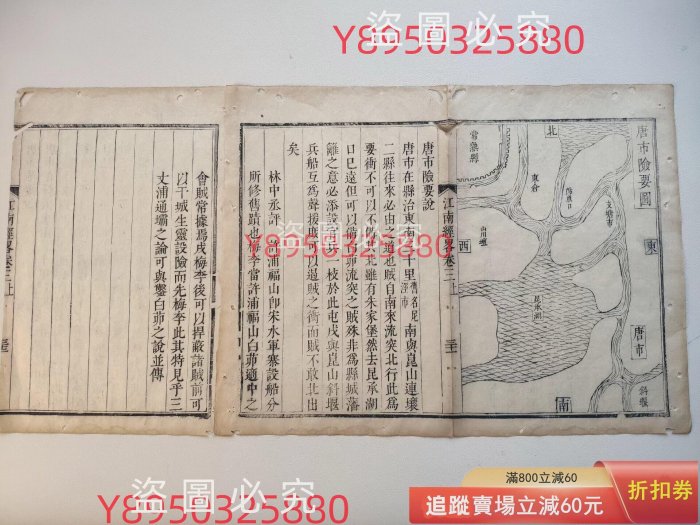 盜圖必究
Y8950325880
唐市險要圖
北
常熟縣
東倉
支塘市
東
西
山川壇
昆承湖
唐市
斜堰
南
江南經畧卷三上
唐市險要說
唐市在縣治東南三十里舊名尤涇市南與崑山連壤
二縣往來必由之道也賊自南來流突北行此爲
要衝不可以不備其北雖有朱家堡然去昆承湖
口已遠但可以備白茆流突之賊殊非爲縣城藩
籬之意必添設官兵一枝於此屯戍與崑山斜堰
兵船互爲聲援庶可以遏賊之衝而賊不敢北出
矣
林中丞評 許浦福山卽宋水軍寨設船分
所修舊蹟也梅李當許浦福山白茆適中之
江南經畧卷三上
會賊常據焉戍梅李後可以捍蔽諸賊前可
以干城生靈設險而先梅李此其特見乎三
丈浦通壩之論可與鑿白茆之說並傳
盜圖必究
Y8950325880
盜圖必究
Y8950325880
盜圖必究
Y8950325880
滿800立減60
追蹤賣場立減60元
折扣券